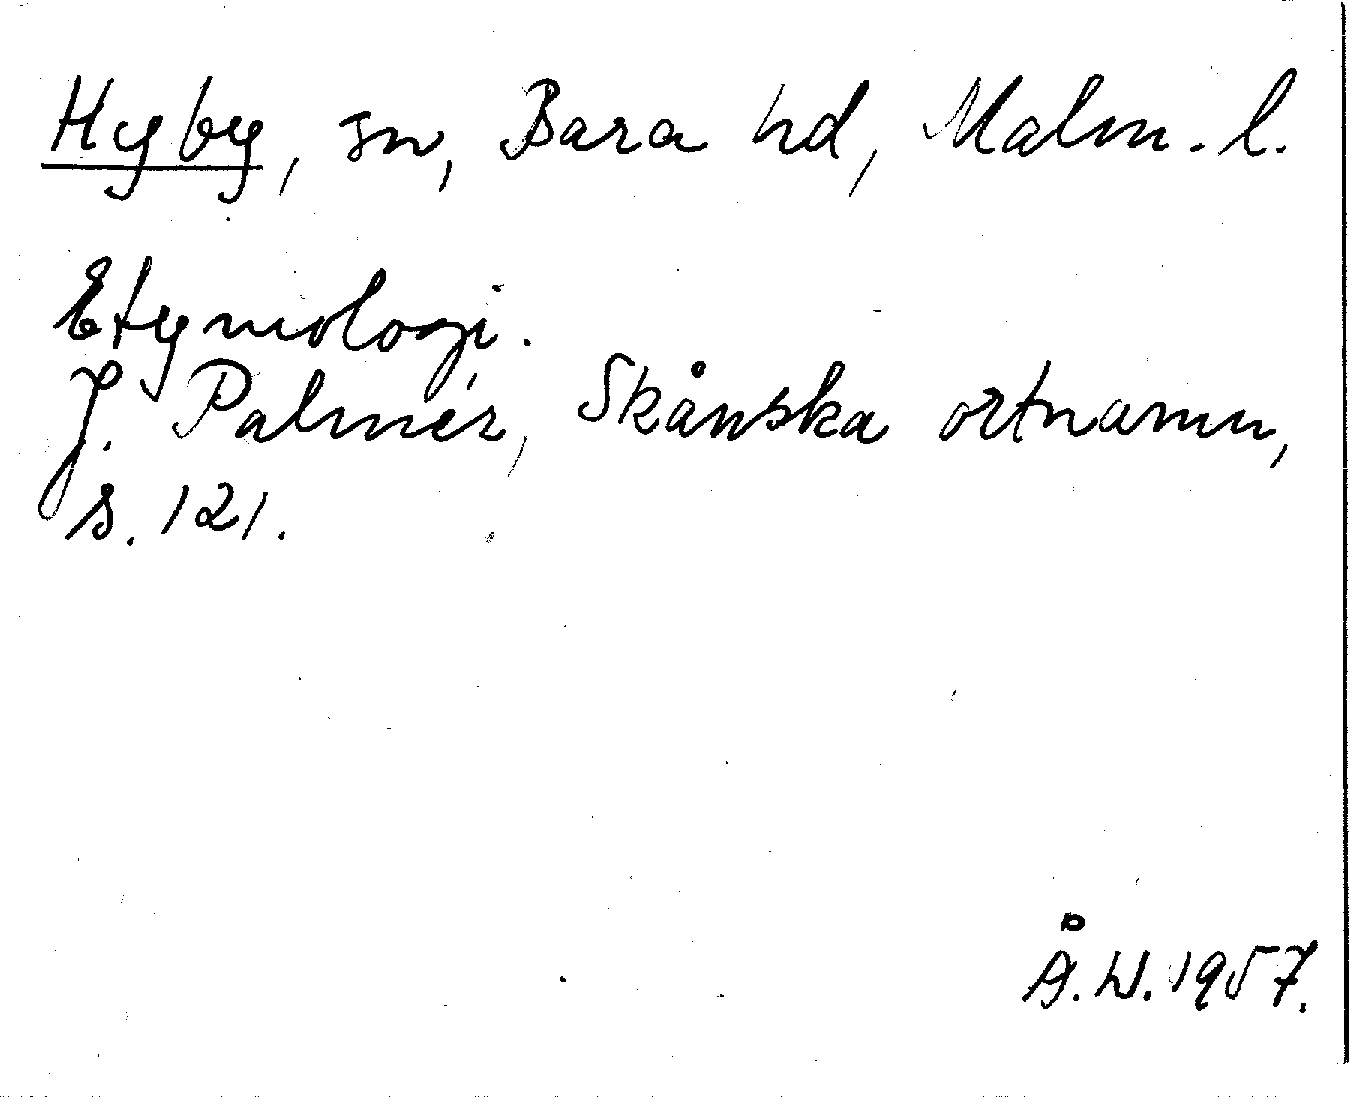 Hyby, sn, Bara hd, Malm. l.
Etymologi.
J. Palmér, Skånska ortnamn,
s. 121.
Å.W. 1957.